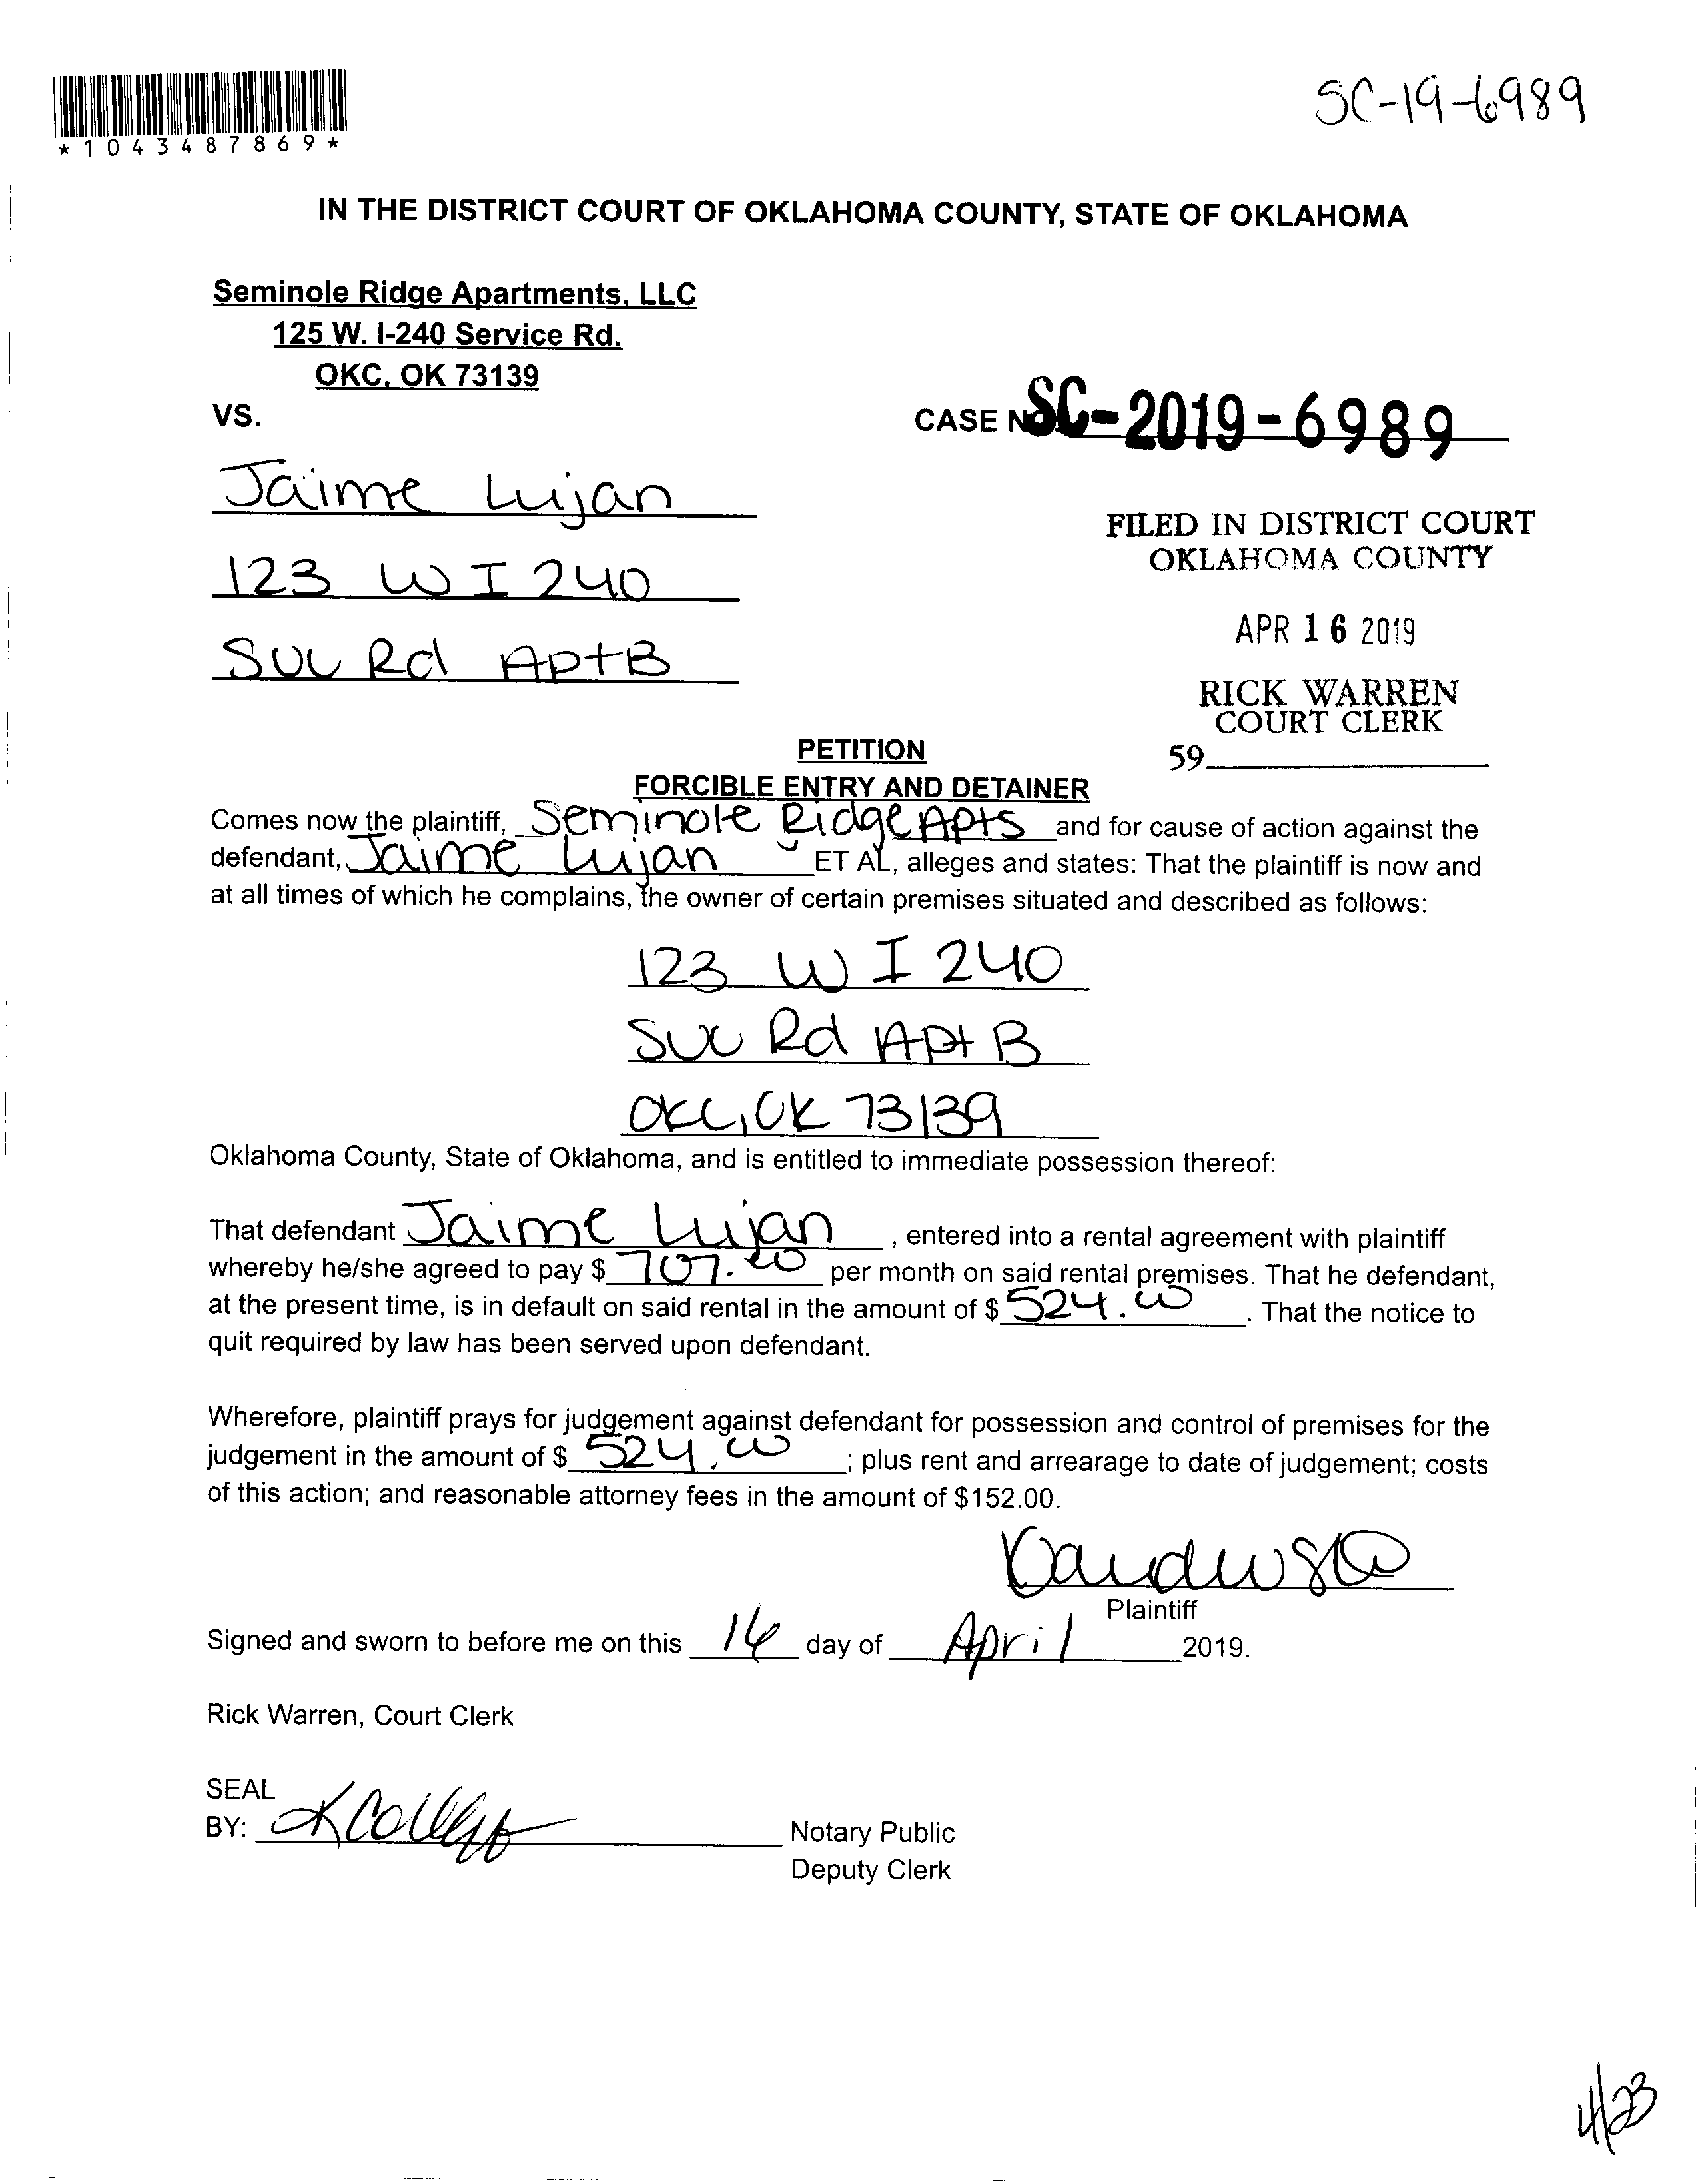 SC-19-6989
*1043487869*
IN THE DISTRICT COURT OF OKLAHOMA COUNTY, STATE OF OKLAHOMA
Seminole Ridge Apartments, LLC
125 W. I-240 Service Rd.
OKC, OK 73139
VS.
CASE NO. SC-2019-6989
Jaime Lujan
123 W I 240
Svc Rd Apt B
FILED IN DISTRICT COURT
OKLAHOMA COUNTY
APR 16 2019
RICK WARREN
COURT CLERK
59
PETITION
FORCIBLE ENTRY AND DETAINER
Comes now the plaintiff, Seminole Ridge Apts and for cause of action against the
defendant, Jaime Lujan ET AL, alleges and states: That the plaintiff is now and
at all times of which he complains, the owner of certain premises situated and described as follows:
123 W I 240
Svc Rd Apt B
OKC, OK 73139
Oklahoma County, State of Oklahoma, and is entitled to immediate possession thereof:
That defendant Jaime Lujan, entered into a rental agreement with plaintiff
whereby he/she agreed to pay $ 707.00 per month on said rental premises. That he defendant,
at the present time, is in default on said rental in the amount of $ 524.00. That the notice to
quit required by law has been served upon defendant.
Wherefore, plaintiff prays for judgement against defendant for possession and control of premises for the
judgement in the amount of $ 524.00; plus rent and arrearage to date of judgement; costs
of this action; and reasonable attorney fees in the amount of $152.00.
Plaintiff
Signed and sworn to before me on this 16 day of April 2019.
Rick Warren, Court Clerk
SEAL
BY:
Notary Public
Deputy Clerk
4/23